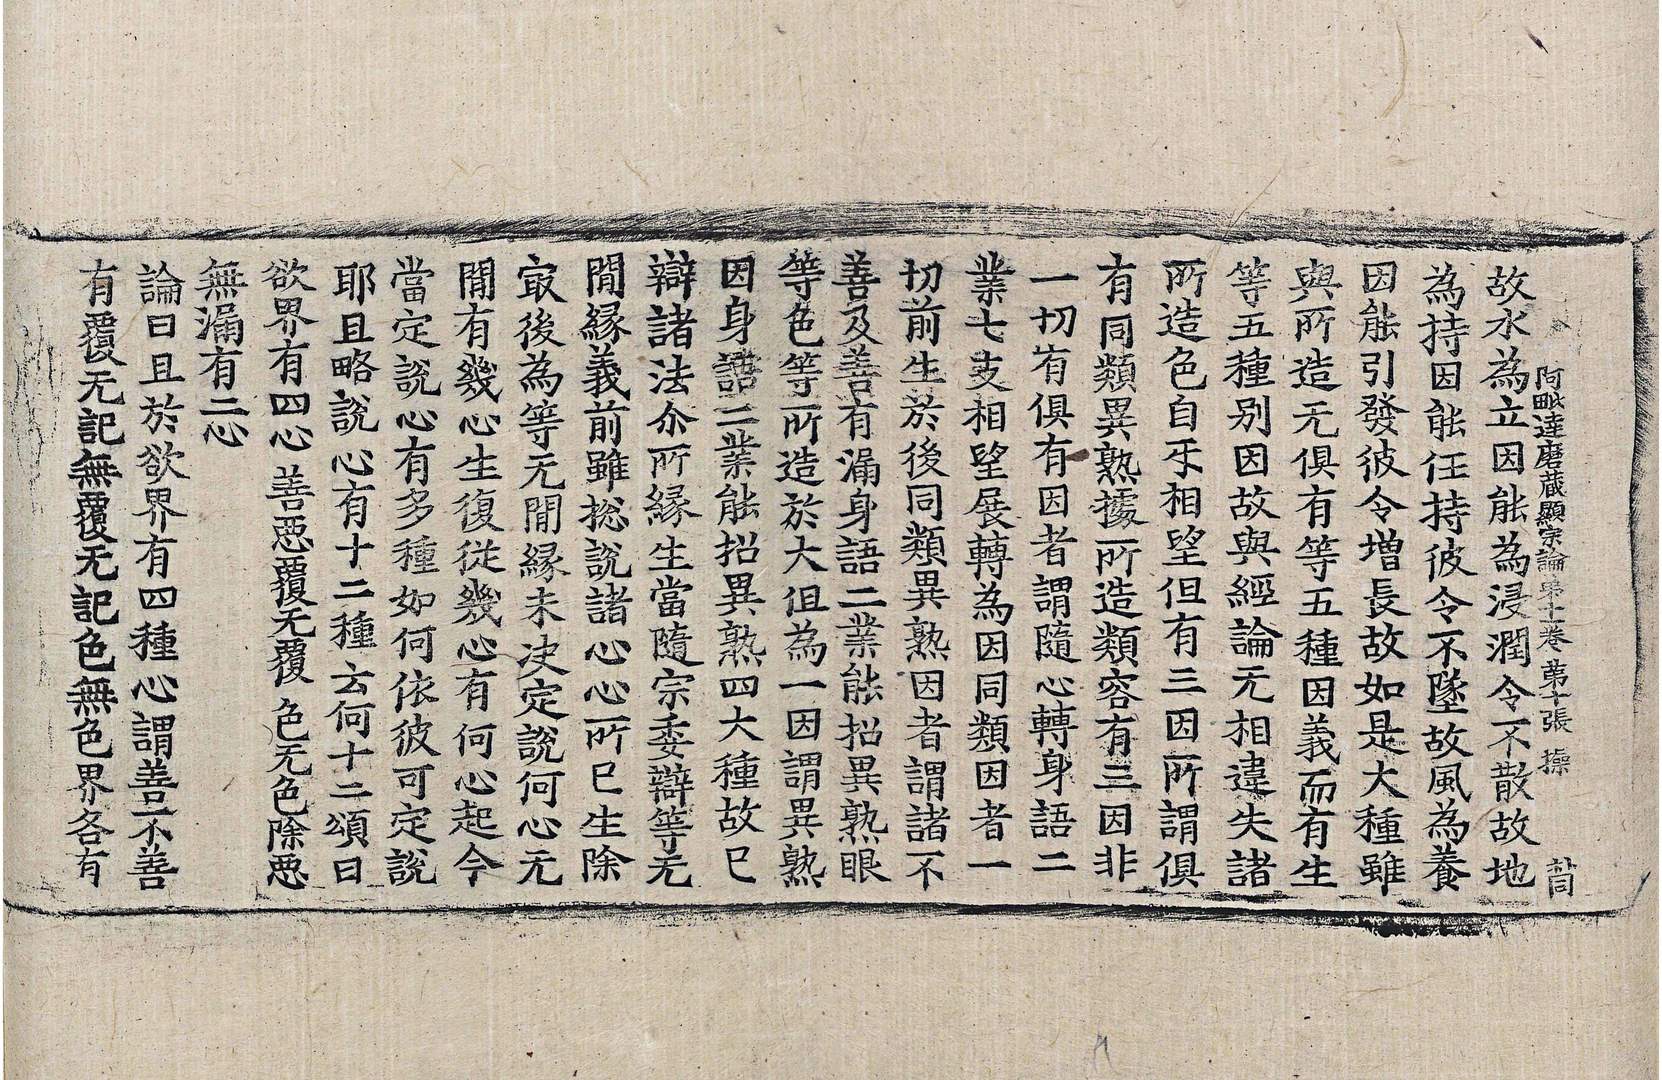 阿毗達磨藏顯宗論第十一卷 第十張 操
故水為立因能為浸潤令不散故地
為持因能任持彼令不墜故風為養
因能引發彼令增長故如是大種雖
與所造无俱有等五種因義而有生
等五種别因故與經論无相違失諸
所造色自互相望但有三因所謂俱
有同類異熟據所造類容有三因非
一切有俱有因者謂隨心轉身語二
業七支相望展轉為因同類因者一
切前生於後同類異熟因者謂諸不
善及善有漏身語二業能招異熟眼
等色等所造於大但為一因謂異熟
因身語二業能招異熟四大種故已
辯諸法介所緣生當隨宗委辯等无
間緣義前雖捴說諸心心所已生除
㝡後為等无間緣未决定說何心无
間有幾心生復從幾心有何心起今
當定說心有多種如何依彼可定說
耶且略說心有十二種云何十二頌曰
欲界有四心 善惡覆无覆 色无色除惡
無漏有二心
論曰且於欲界有四種心謂善不善
有覆无記無覆无記色無色界各有